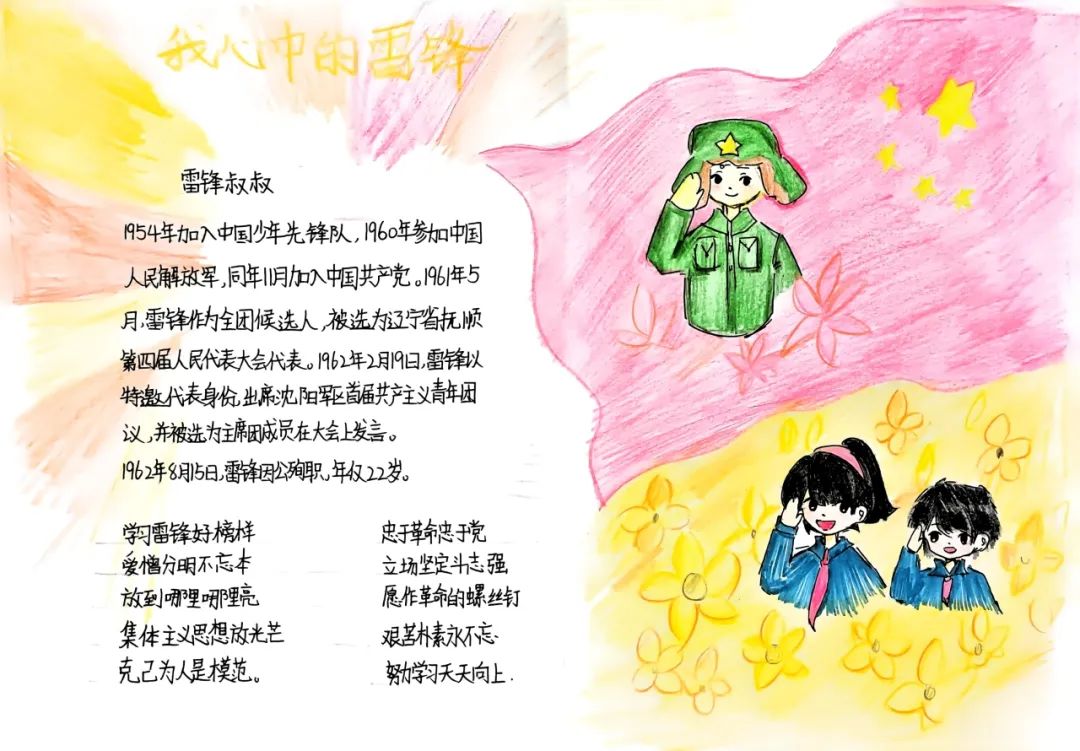 我心中的雷锋
雷锋叔叔
1954年加入中国少年先锋队，1960年参加中国
人民解放军，同年11月加入中国共产党。1961年5
月，雷锋作为全团候选人，被选为辽宁省抚顺
第四届人民代表大会代表。1962年2月19日，雷锋以
特邀代表身份，出席沈阳军区首届共产主义青年团
议，并被选为主席团成员在大会上发言。
1962年8月15日，雷锋因公殉职，年仅22岁。
学习雷锋好榜样
爱憎分明不忘本
放到哪里哪里亮
集体主义思想放光芒
克己为人是模范。
忠于革命忠于党
立场坚定斗志强
愿作革命的螺丝钉
艰苦朴素永不忘
努力学习天天向上.